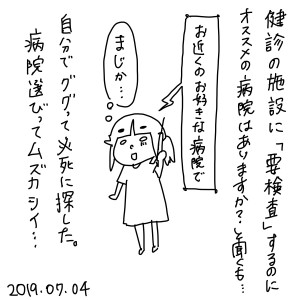 健診の施設に「要検査」するのに
オススメの病院はありますか?と聞くも…
お近くのお好きな病院で
まじか…
自分でググって必死に探した。
病院選びってムズカシイ…
2019.07.04